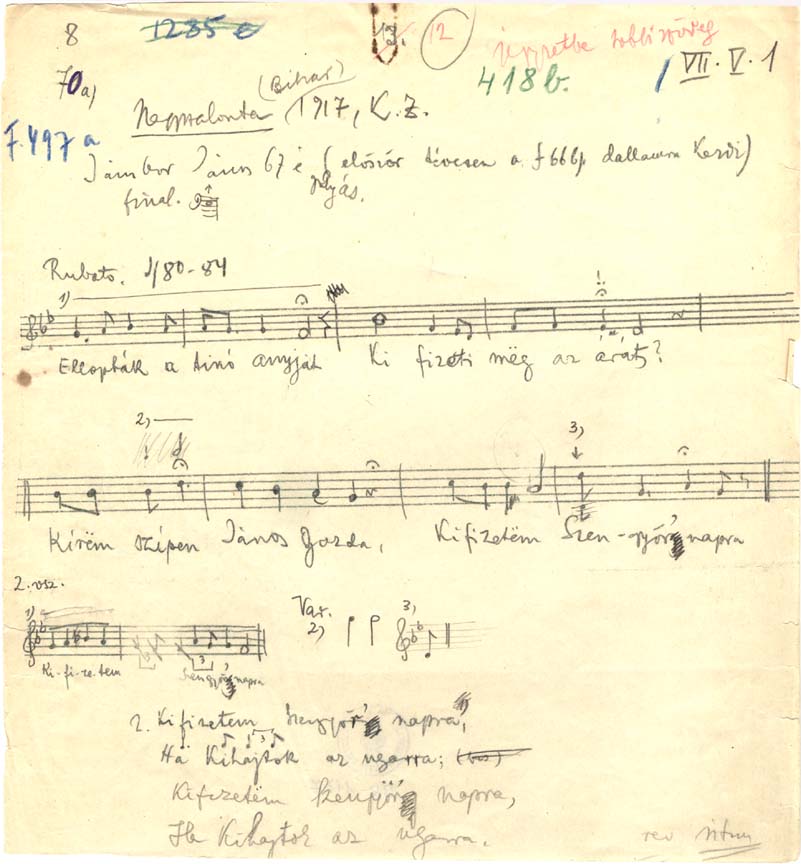 8 1285 e 12
ügyretbe többi szöveg
70a) (Bihar) 418b. VII. V. 1
Nagyszalonta 1917, K. Z.
F. 497 a
Jámbor János 67 é (először tévesen a f 666/1 dallamra kezdi)
gulyás.
final.
Rubato. 80-84
1)
Ellopták a tinó anyját Ki fizeti mëg az árát?
2) 3)
Kírëm szípen János gazda, Kifizetëm Szen-györ napra
2. vsz.
1) Var. 2) 3)
Ki-fi-ze-tem Szengyör napra
2. Kifizetem Szengyör napra,
Ha Kihajtok az ugarra; (bis)
Kifizetëm Szengyör napra,
Ha Kihajtok az ugarra.
rev ritmus